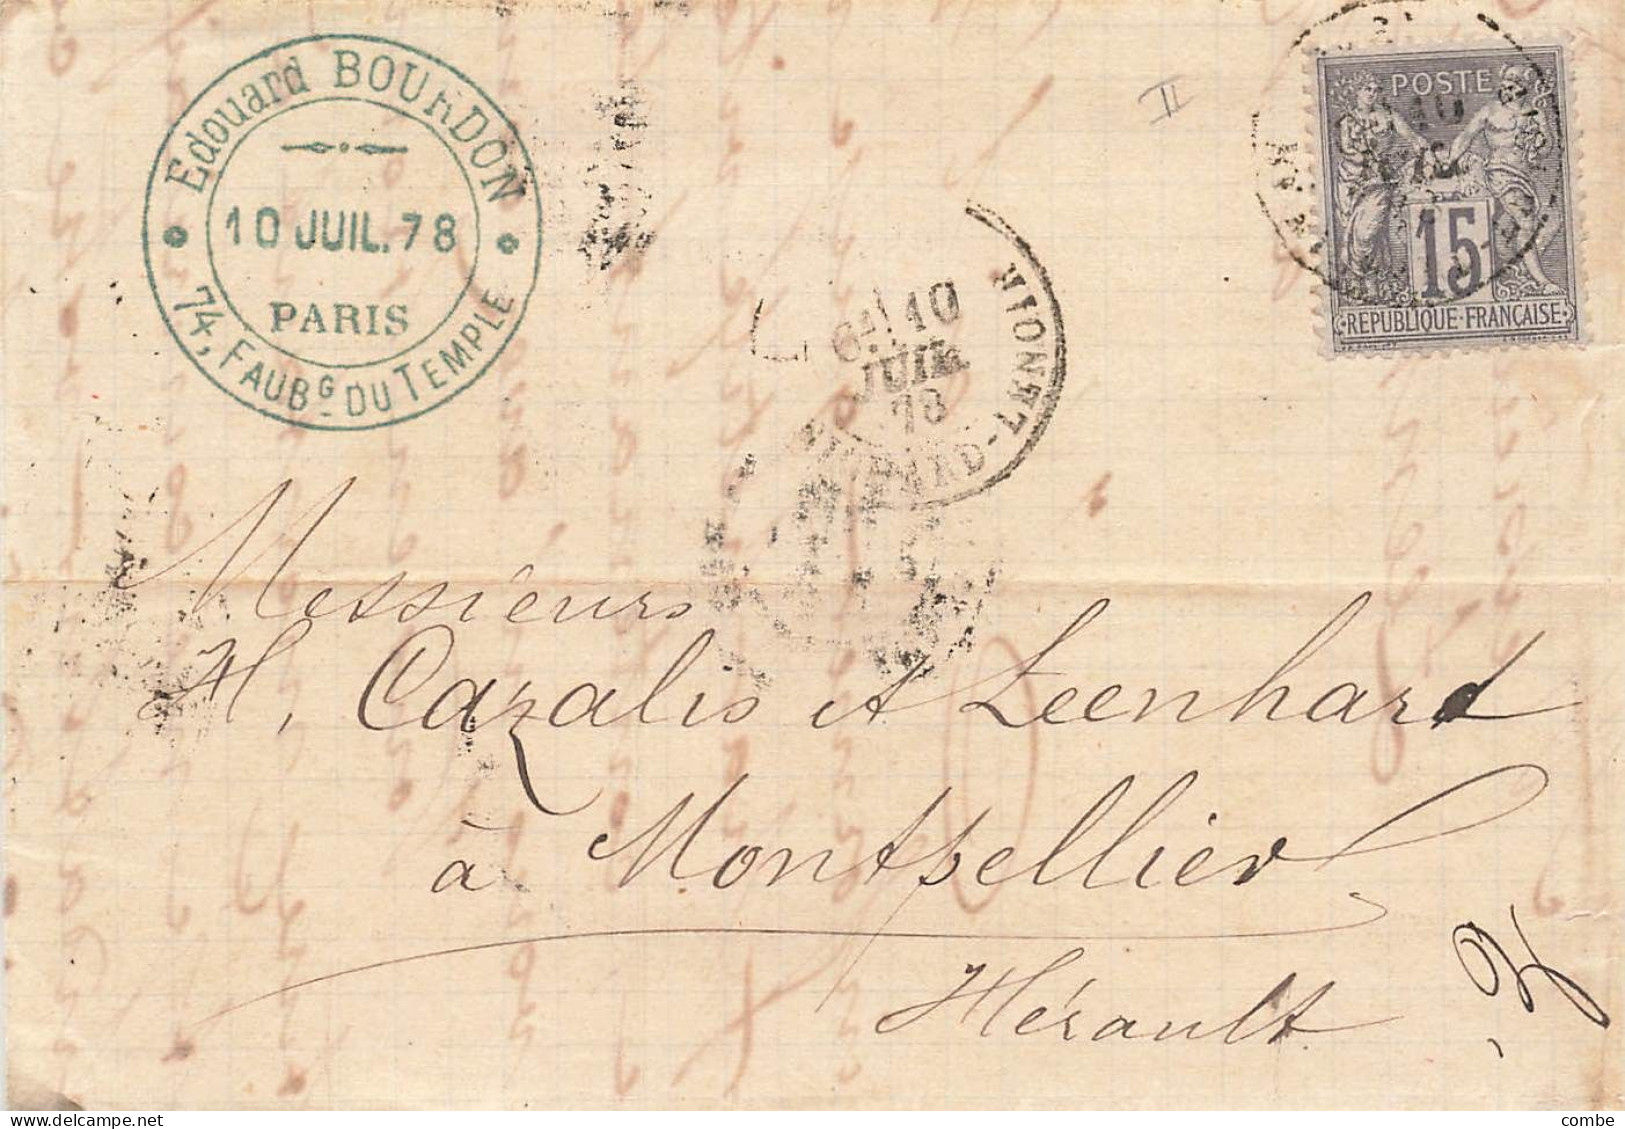 Edouard BOURDON
10 JUIL. 78
PARIS
74, FAUBG DU TEMPLE
II
POSTE
15
RÉPUBLIQUE FRANÇAISE
10
JUIL
78
RICHARD-LENOIR
Messieurs
H. Cazalis et Leenhard
à Montpellier
Hérault
delcampe.net
combe